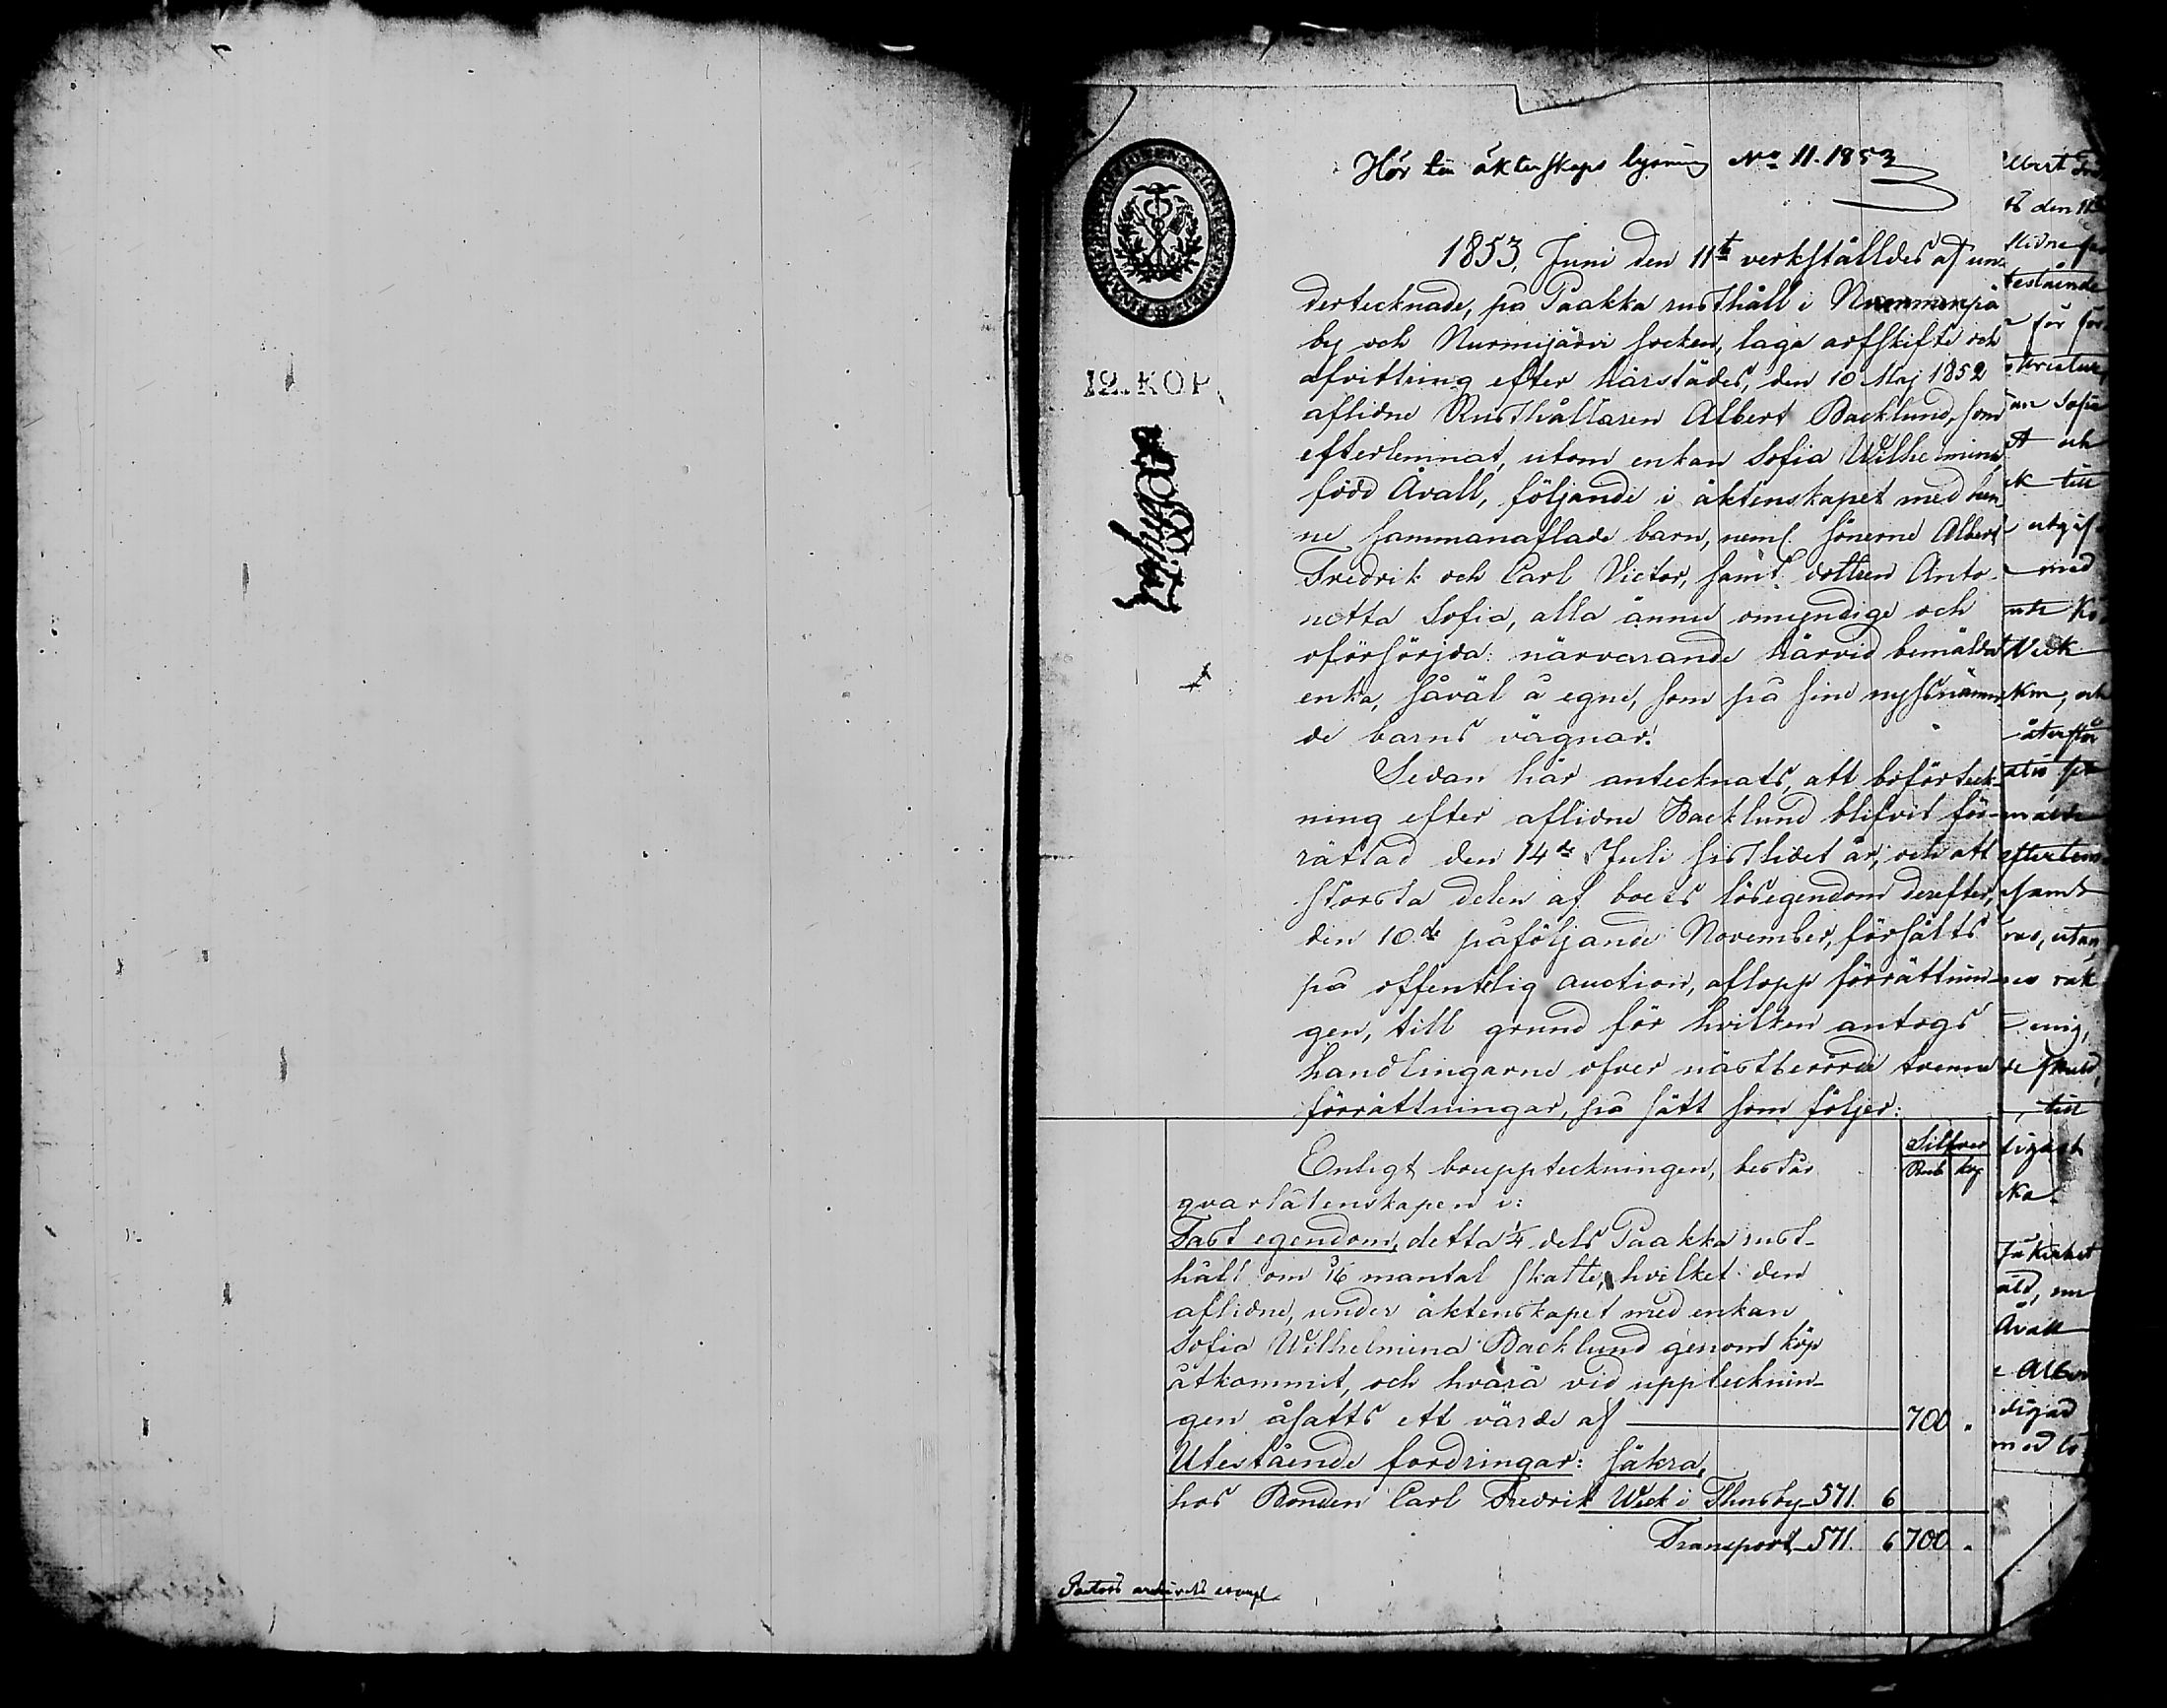 Hör till äktenskaps lysning No 11. 1853
1853, Juni den 11te verkställdes af un-
dertecknade, på Paakka rusthåll i Nummenpä
by och Nurmijärvi socken, laga arfskifte och
afvittring efter härstädes, den 10 Maj 1852
aflidne Rusthållaren Albert Backlund, som
efterlemnat, utom enkan Sofia Wilhelmina,
född Avall, följande i äktenskapet med hen-
ne sammanaflade barn, neml. sönerne Albert
Fredrik och Carl Victor, samt dottren Anto-
netta Sofia, alla ännu omyndige och
oförsörjda: närvarande härvid bemälda
enka, såväl å egne, som på sine nyssnämn-
de barns vägnar.
Sedan här antecknats, att boförteck-
ning efter aflidne Backlund blifvit för-
rättad den 14de Juli sistlidet år, och att
största delen af boets lösegendom derefter,
den 10de påföljande November, försålts
på offentelig auction, aflopp förrättnin-
gen, till grund för hvilken antogs
handlingarne öfver nästberörde tvenne
förrättningar, på sätt som följer:
Silfver
Enligt bouppteckningen, består
Rub kop
qvarlåtenskapen i:
Fast egendom, detta 1/4 dels Paakka rust-
håll om 3/16 mantal skatte, hvilket den
aflidne, under äktenskapet med enkan
Sofia Wilhelmina Backlund genom köp
åtkommit, och hvarå vid upptecknin-
gen åsatts ett värde af 700 "
Utestående fordringar: säkra,
hos Bonden Carl Fredrik Weck i 571. 6
Transport 571. 6 700 "
12. KOP.